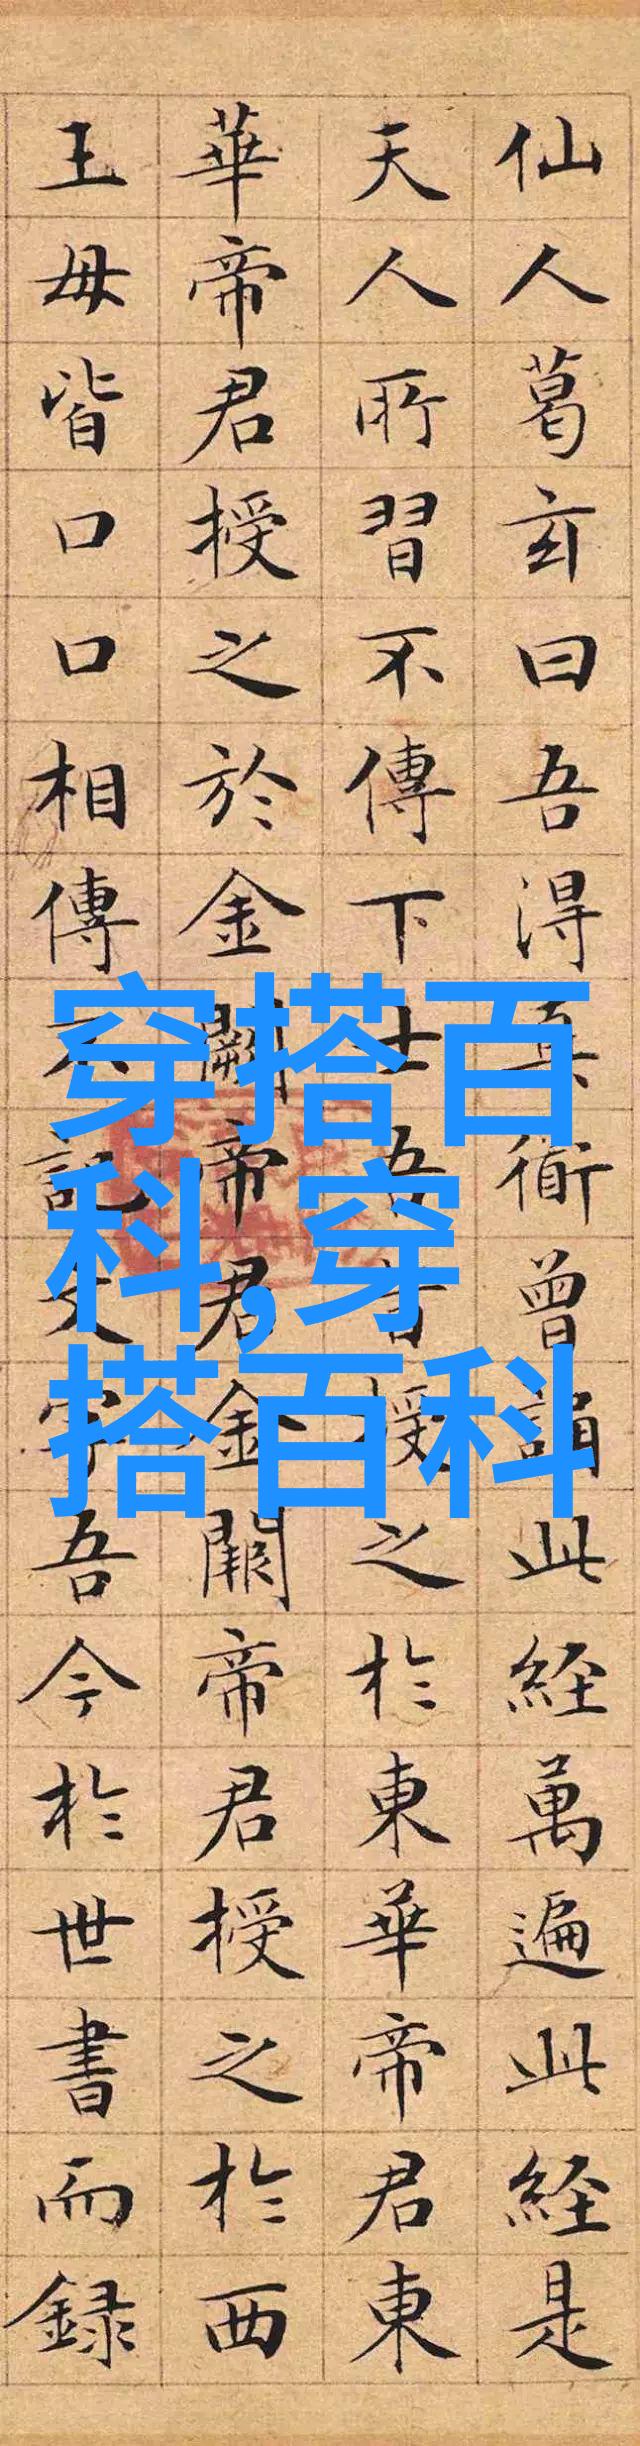 仙人葛玄曰吾淂真衜曾誦此経萬遍此経是
天人所習不傳下士吾昔授之於東華帝君東
華帝君授之於金闕帝君金闕帝君授之於西
王母皆口口相傳不記文字吾今於世書而録
穿搭百
科,穿
搭百科